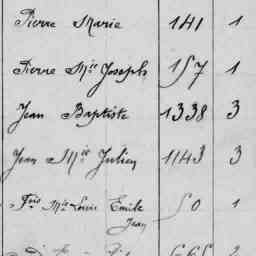 Pierre Marie 141 1
Pierre Mie Joseph 157 1
Jean Baptiste 1338 3
Jean Mie Julien 1143 3
Fois Mie Louis Emile 50 1
Jean